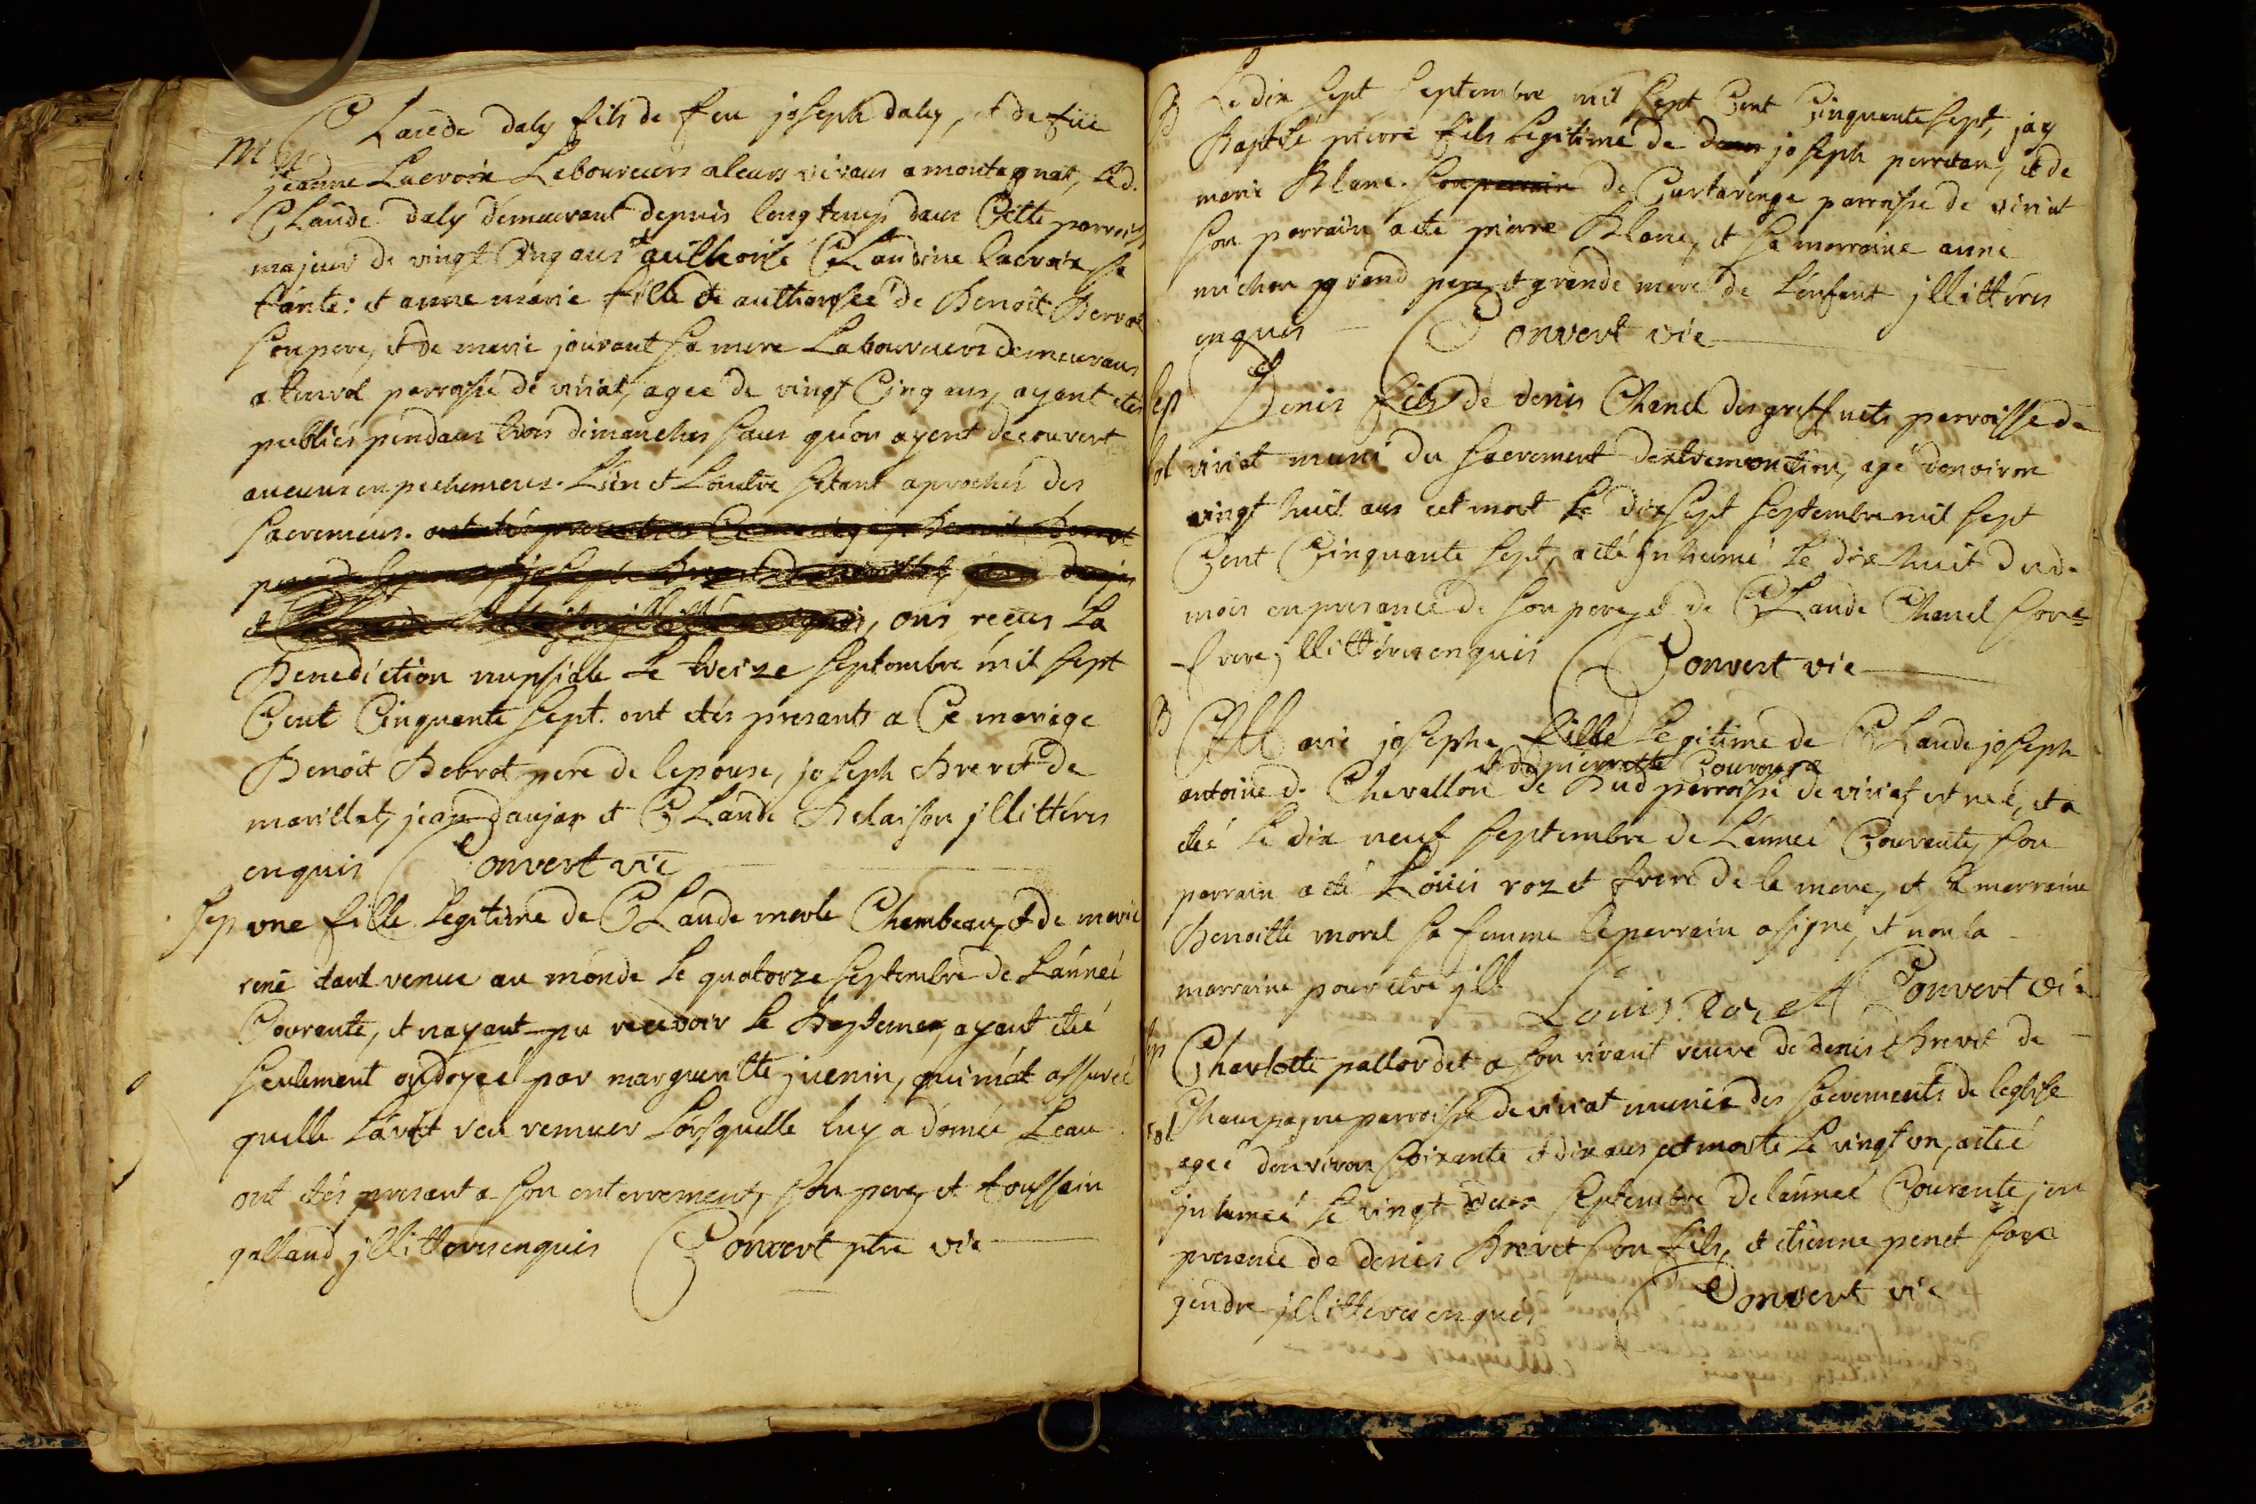 M
CLaude daly fils de feu joseph daly, et de füe
jeanne Lacroix Laboureurs aleurs vivans a montagnat, led.
CLaude daly demeurant depuis long temps dans Cette parroisse
majeur de vingt Cinq ans et authorisé CLaudine Lacroix sa
tante: et anne marie fille et authorisée de Benoit
son pere, et de marie jouvant sa mere Laboureurs demeurans
a parroisse de viriat, agée de vingt Cinq ans, ayant etés
publiés pendant trois dimanches sans qu'on ayent decouvert
aucuns enpechemens. L'un et Loutre s'etant aprochés des
sacremens.
et , ons reçus La
Benediction nupsiale Le treize septembre mil sept
Cent Cinquante sept. ont etés presants a Ce mariage
Benoit Bebrot pere de lepouse, joseph Brevet de
marillat, jean daujat et CLaude Belaison jllittérés
enquis Convert vie
sep une fille Legitime de CLaude merle Chambeau, et de marie
rené etant venue au monde Le quatorze septembre de L'année
Courante, et nayant pu recevoir Le Baptemes, ayant eté
seulement ondoyée par margueritte juenin, qui m'at assuré
quelle L'avoit veu remuer Lorsquelle luy a donné Leau
ont etés presant a son enterrement, son pere, et toussain
galland jllitteresenquis Convert ptre vie
B Le dix sept septembre mil sept Cent Cinquante sept, jay
Baptisé pierre fils Legitime de joseph perretan, et de
marie Blanc. son parrain de Curtaringe parroisse de viriat
son parrain a eté pierre Blanc, et sa marraine anne
michon grand pere et grande mere de L'enfant jllittérés
enquis Convert vie
sep Denis fils de denis Chanel des greffnets parroisse de
viriat muni du sacrement dextremonction, agé denviron
vingt huit ans est mort Le dix sept septembre mil sept
Cent Cinquante sept, a eté jnhumé Le dix huit dud.
mois en presance de son pere, et de CLaude Chanel son
frere, jllittéresenquis Convert vie
B Marie josephe fille Legitime de CLaude joseph
et de pierrette
antoine d. Chevallon de Bud parroisse de viriat est née, et a
eté Le dix neuf septembre de L'année Courante, son
parrain a eté Loüis rozet frere de la mere, et La marraine
Benoitte morel sa femme Le parrain a signé, et non la
marraine pour etre jll Louis Rozet Convert vie
sep Charlotte pallordet a son vivant veuve de denis Brevet de
Champagne parroisse de viriat munie des sacrements de leglise
agée denviron soixante et dix ans est morte Le vingt un, a eté
jnhumée Le vingt deux septembre de L'année Courante, en
presence de denis Brevet son fils, et etienne penet son
gendre jllitteres enquis Convert vie